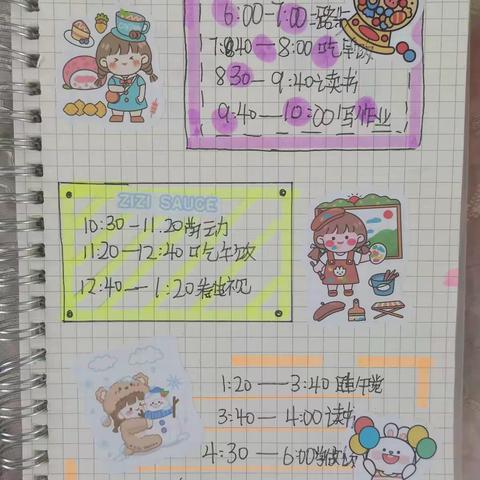 6:00-7:00 跑步
7:40—8:00 吃早饭
8:30—9:40 读书
9:40—10:00 写作业
ZIZI SAUCE
10:30-11:20 劳动
11:20-12:40 吃午饭
12:40—1:20 看电视
1:20—3:40 睡午觉
3:40—4:00 读书
4:30—6:00 学做饭